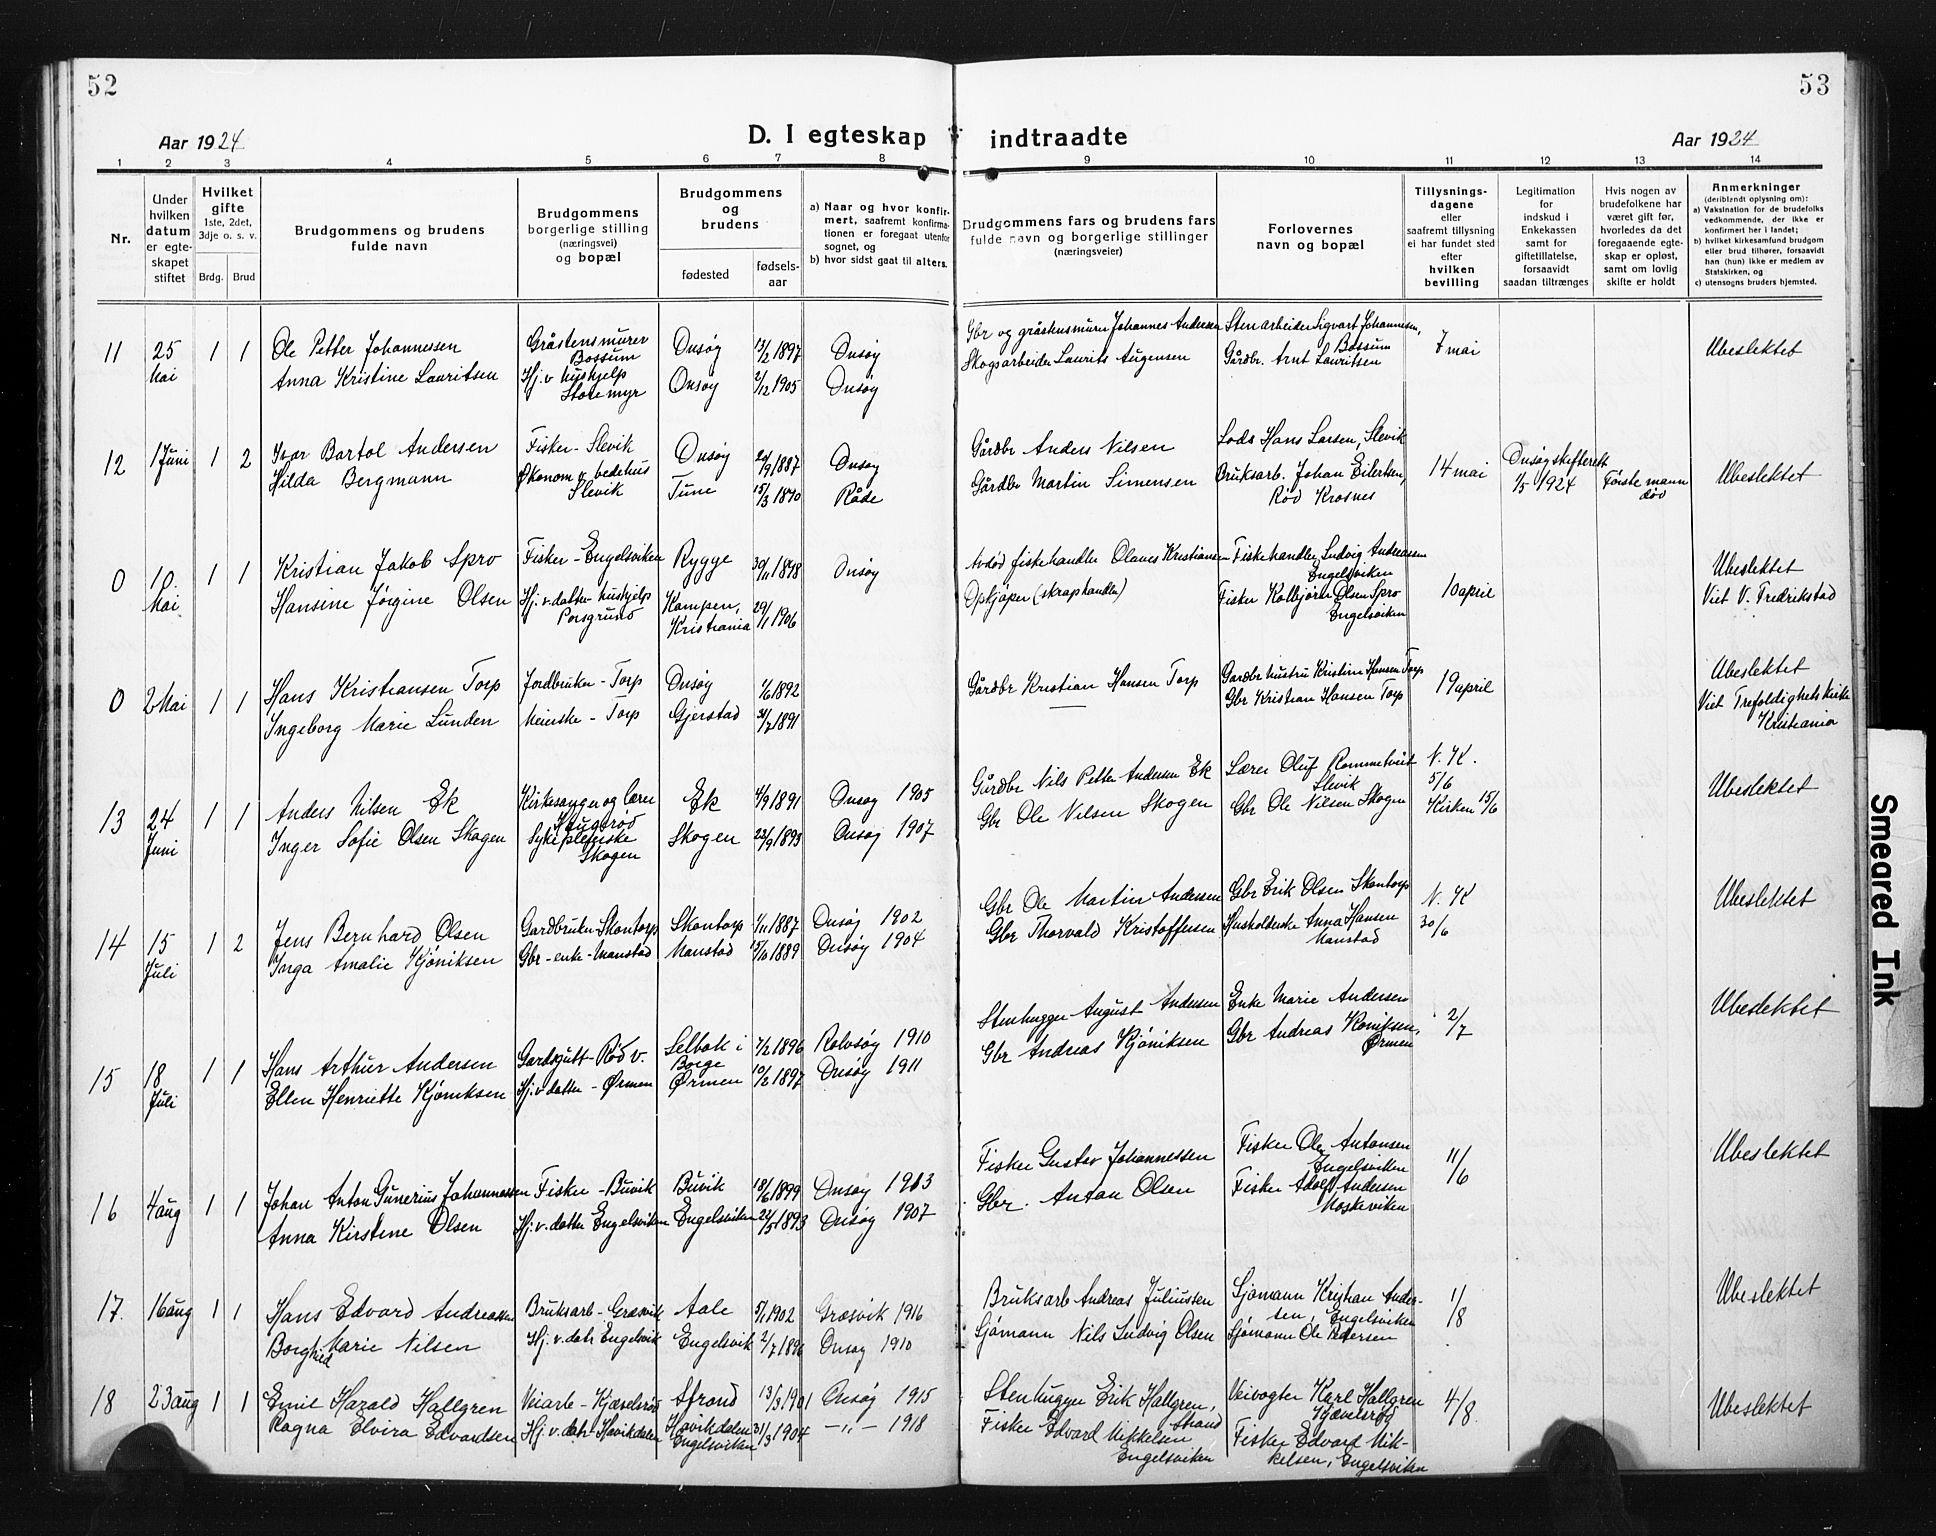 52
53
Aar 1924
D. I egteskap indtraadte
Aar 1924
1 2 3 4 5 6 7 8 9 10 11 12 13 14
Nr.
Under hvilken datum er egte-skapet stiftet
Hvilket gifte
1ste, 2det, 3dje o. s. v.
Brdg. Brud
Brudgommens og brudens fulde navn
Brudgommens borgerlige stilling (næringsvei) og bopæl
Brudgommens og brudens
fødested
fødsels-aar
a) Naar og hvor konfir-mert, saafremt konfirma-tionen er foregaat utenfor sognet, og
b) hvor sidst gaat til alters.
Brudgommens fars og brudens fars fulde navn og borgerlige stillinger (næringsveier)
Forlovernes navn og bopæl
Tillysnings-dagene eller saafremt tillysning ei har fundet sted efter hvilken bevilling
Legitimation for indskud i Enkekassen samt for giftetillatelse, forsaavidt saadan tiltrænges
Hvis nogen av brudefolkene har været gift før, hvorledes da det foregaaende egte-skap er opløst, samt om lovlig skifte er holdt
Anmerkninger (deriblandt oplysning om):
a) Vaksination for de brudefolks vedkommende, der ikke er konfirmert her i landet;
b) hvilket kirkesamfund brudgom eller brud tilhører, forsaavidt han (hun) ikke er medlem av Statskirken, og
c) utensogns bruders hjemsted.
11 25 Mai 1 1 Ole Petter Johannessen Gråstensmurer Bossum Onsøy 13/2 1897 Onsøy Gbr og gråstensmurer Johannes Andersen Stenarbeider Sigvart Johannesen, Bossum 7 mai Ubeslektet
Anna Kristine Lauritsen Hj. v. hushjelp Storemyr Onsøy 2/12 1905 Onsøy Skogsarbeider Laurits Augensen Gårdbr. Arnt Lauritsen
12 1 Juni 1 2 Ivar Bartol Andersen Fisker - Slevik Onsøy 29/9 1887 Onsøy Gårdbr Anders Nilsen Lods Hans Larsen, Slevik 14 mai Onsøy skifterett 1/5 1924 Første mann død Ubeslektet
Hilda Bergmann Økonom v. bedehus Slevik Tune 15/3 1870 Råde Gårdbr Martin Simensen Bruksarb. Johan Eilertsen, Rød Krosnes
0 10. Mai 1 1 Kristian Jakob Spro Fisker - Engelsviken Rygge 30/11 1898 Onsøy Avdød fiskehandler Olaves Kristiansen Fiskehandler Ludvig Andreassen Engelsviken 10 april Ubeslektet
Hansine Jørgine Olsen Hj. v. datter hushjelp Porsgrund Kampen, Kristiania 29/1 1906 Opkjøper (skraphandler) Fisker Kolbjørn Olsen Spro Engelsviken Viet V. Fredrikstad
0 2 Mai 1 1 Hans Kristiansen Torp Jordbruker - Torp Onsøy 1/6 1892 Gårdbr Kristian Hansen Torp Gårdbr hustru Kristine Hansen Torp 19 april Ubeslektet
Ingeborg Marie Lunden Meierske - Torp Gjerstad 31/7 1891 — Gbr Kristian Hansen Torp Viet Trefoldighetskirke Kristiania
13 24 Juni 1 1 Anders Nilsen Ek Kirkesanger og lærer Ek 4/9 1891 Onsøy 1905 Gårdbr Nils Petter Andersen Ek Lærer Oluf Rommetveit Slevik N. K. 5/6 Ubeslektet
Inger Sofie Olsen Skogen Sykepleierske Skogen Skogen 23/9 1893 Onsøy 1907 Gbr Ole Nilsen Skogen Gbr Ole Nilsen Skogen Kirken 15/6
14 15 Juli 1 2 Jens Bernhard Olsen Gardbruker - Skontorp Skontorp 1/11 1887 Onsøy 1902 Gbr Ole Martin Andersen Gbr Erik Olsen Skontorp N. K 30/6 Ubeslektet
Inga Amalie Kjøniksen Gbr - enke - Manstad Manstad 15/10 1889 Onsøy 1904 Gbr Thorvald Kristoffersen Husholderske Anna Hansen Manstad
15 18 Juli 1 1 Hans Arthur Andersen Gardsgutt - Rød v. Selbak i Borge 7/2 1896 Rolvsøy 1910 Stenhugger August Andersen Enke Marie Andersen 2/7 Ubeslektet
Ellen Henriette Kjøniksen Hj. v. datter - Ørmen Ørmen 10/2 1897 Onsøy 1911 Gbr Andreas Kjøniksen Gbr Andreas Køniksen, Ørmen
16 4 aug 1 1 Johan Anton Gunerius Johannessen Fisker - Buvik Buvik 18/6 1899 Onsøy 1913 Fisker Gustav Johannessen Fisker Ole Antonsen Engelsviken 11/6 Ubeslektet
Anna Kirstine Olsen Hj. v. datter Engelsviken Engelsviken 22/5 1893 Onsøy 1907 Gbr. Anton Olsen Fisker Adolf Andersen Moskeviken
17. 16 aug 1 1 Hans Edvard Andreassen Bruksarb - Græsvik Aale 5/1 1902 Græsvik 1916 Bruksarb Andreas Juliussen Sjømann Kristian Andersen, Engelsviken 1/8 Ubeslektet
Borghild Marie Nilsen Hj. v. datr Engelsvik Engelsvik 2/7 1896 Onsøy 1910 Sjømann Nils Ludvig Olsen Sjømann Ole Petersen
18 23 aug 1 1 Emil Harald Hallgren Veiarb - Kjævelsrød Strand 13/3 1901 Onsøy 1915 Stenhugger Erik Hallgren, Strand Veivogter Karl Hallgren Kjævelsrød 4/8 Ubeslektet
Ragna Elvira Edvardsen Hj. v. datr - Havikdalen Havikdalen Engelsviken 31/3 1904 —„— 1918 Fisker Edvard Mikkelsen Engelsviken Fisker Edvard Mikkelsen, Engelsviken
Smeared Ink